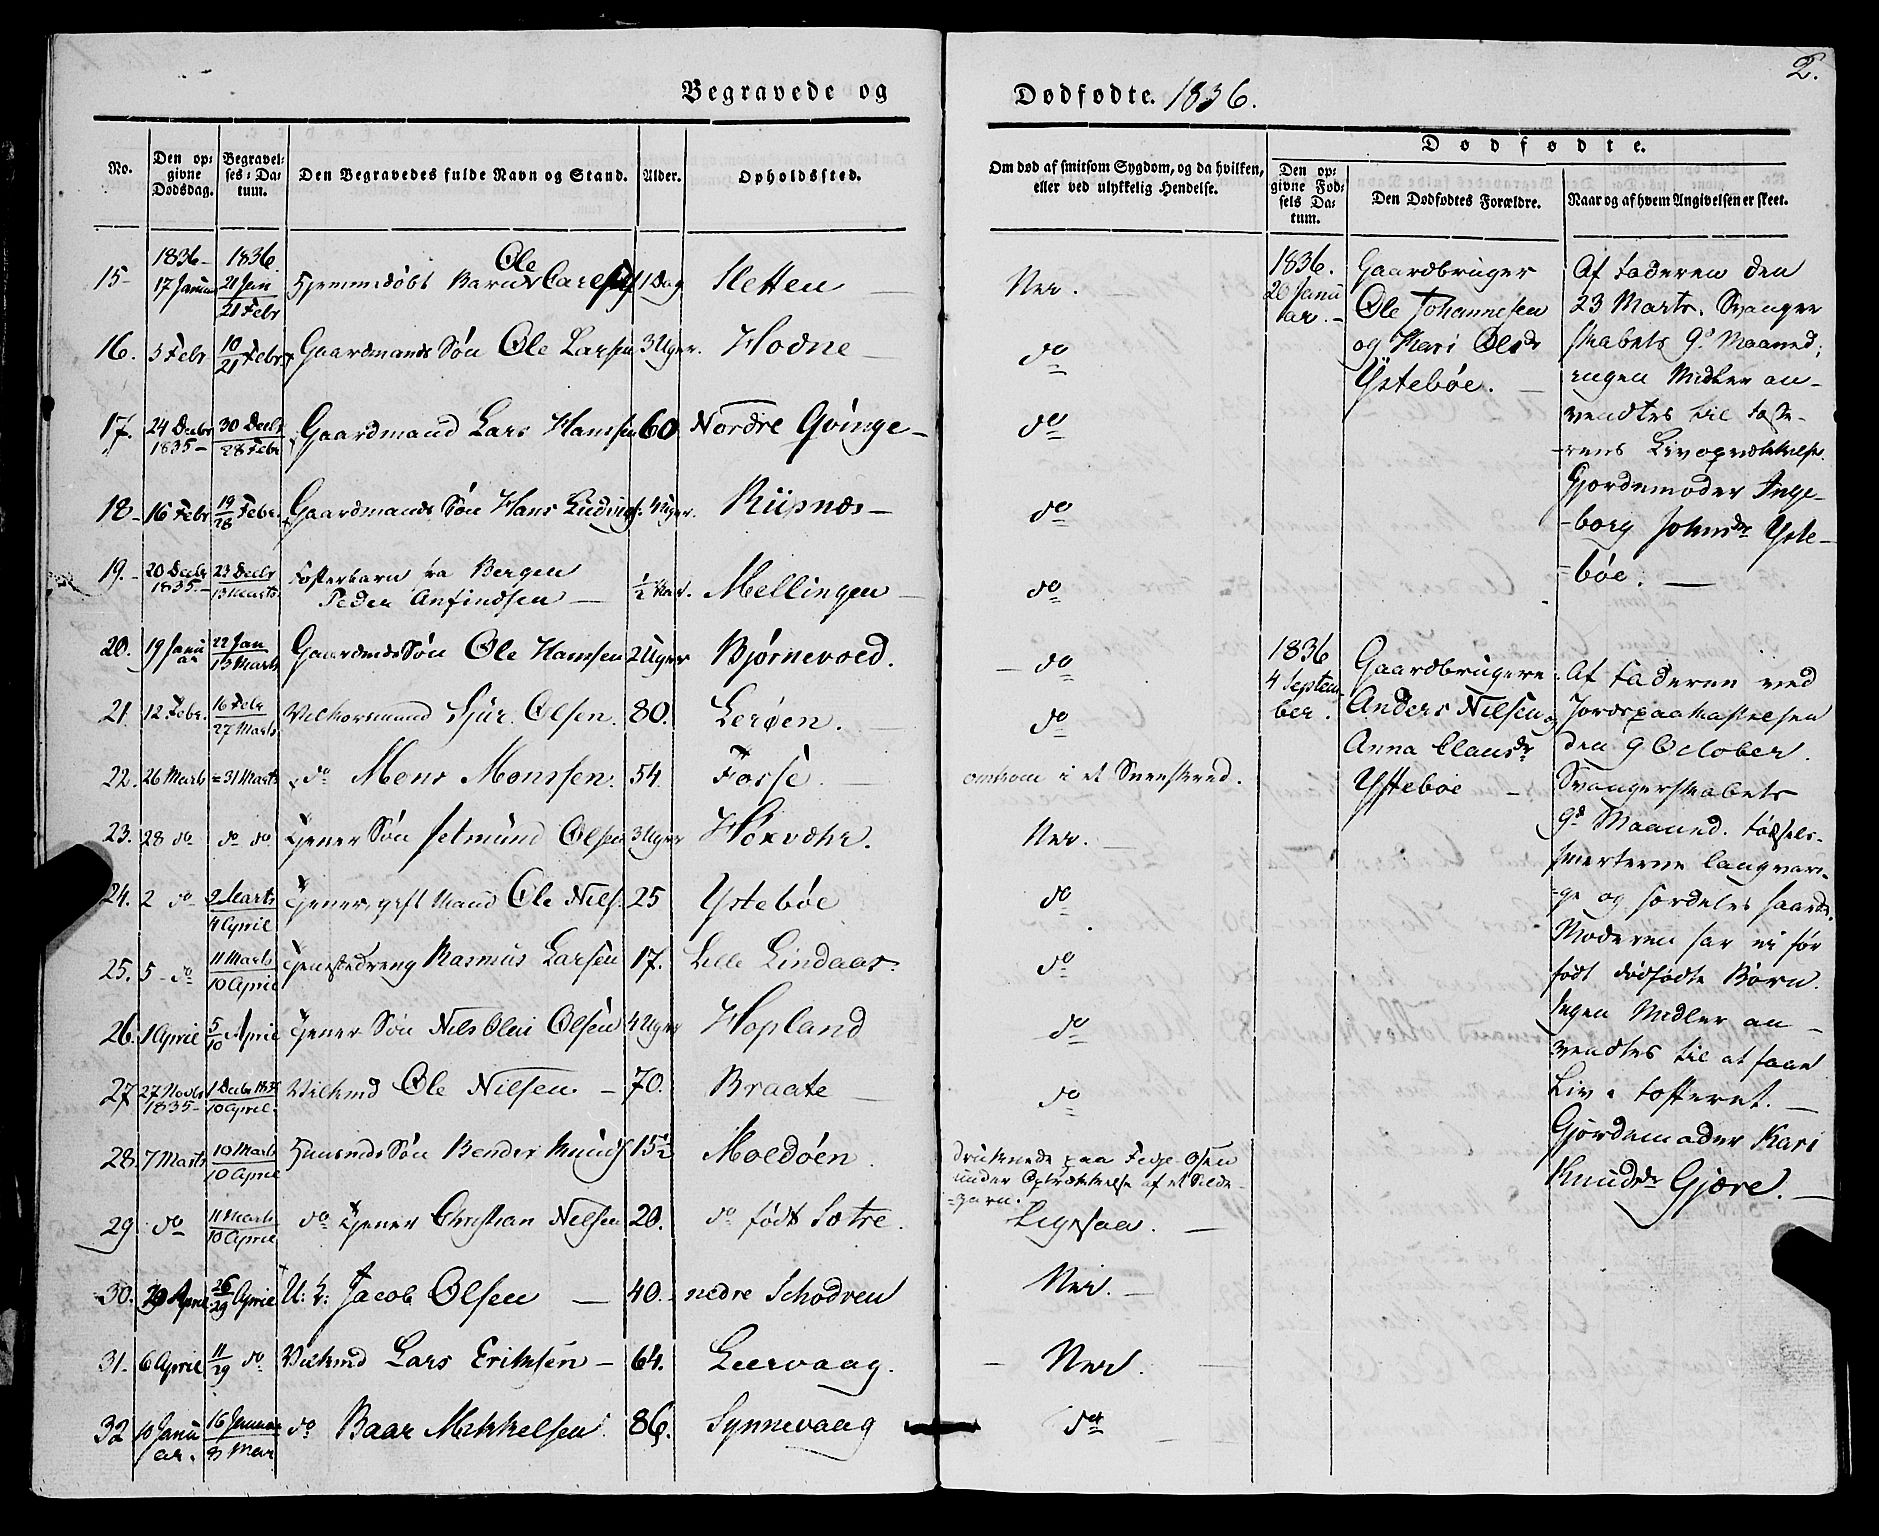 2.
Begravede og Dødfødte. 1836.
No. Den opgivne Dødsdag. Begravelses-Datum. Den Begravedes fulde Navn og Stand. Alder. Opholdssted.
Om død af smitsom Sygdom, og da hvilken, eller ved ulykkelig Hendelse.
Dødfødte.
Den opgivne Fødsels Datum. Den Dødfødtes Forældre. Naar og af hvem Angivelsen er skeet.
1836 1836
15 17 Januar 21 Jan 21 Febr Hjemmedøbt Barn Ole 1 Dag Sletten Nei.
16. 5 Febr 10/21 Febr Gaardmands Søn Ole Larsen 3 Uger. Hodne do
17. 24 Decbr 1835 30 Decbr 28 Febr Gaardmand Lars Hansen 60 Nordre Qvinge do
18 16 Febr 19/28 Febr Gaardmands Søn Hans 4 Uger. Riisnæs do
19. 20 Decbr 1835 23 Decbr 13 Marts Fosterbarn fra Bergen
Peder Anfindsen 1/2 Aar. Mellingen do
20. 19 Januar 22 Jan 13 Marts Gaardmds Søn Ole Hansen 2 Uger Bjørnevold. do
21. 12 Febr. 16 Febr 27 Marts Vilkorsmand Sjur Olsen. 80. Lerøen. do
22. 26 Marts 31 Marts do Mons Monssen. 54. Fosse omkom i et Sneeskred.
23. 28 do do do Tjener Søn Selmund Olsen 3 Uger Nei.
24. 2 do 9 Marts 4 April Tjener, gift Mand Ole Nils. 25 Ystebøe do
25. 5 do 11 Marts 10 April Tjenestedreng Rasmus Larsen 17. Lille Lindaas do
26. 1 April 5/10 April Tjener Søn Nils Olai Olsen 4 Uger Hopland do
27 27 Novbr 1835 1 Decbr 1835 10 April. Vilkmd Ole Nilsen 70. Braate do
28. 7 Marts 10 Marts 10 April Huusmds Søn 15 1/2 Moldøen druknede paa Fedje Osen
under Optrækkelse af et Sildegarn.
29 do 11 Marts 10 April do Tjener Christian Nilsen 20. do født Sætre. Ligesaa.
30. 20 April 26/29 April U: K: Jacob Olsen 40. nedre Schodven Nei.
31. 6 April 11/29 do Vilkmd Lars Eriksen 64. Leervaag. Nei
32 10 Januar. 16 Januar do Baar Mikkelsen 86. Synnevaag do
1836.
20 Januar.
Gaardbruger
Ole Johannesen
og Kari Olsdr
Ystebøe.
Af Faderen den
23 Marts. Svanger
skabets 9de Maaned;
ingen Midler an-
vendtes til Foste-
rens Livopvækkelse.
Gjordemoder Inge-
borg Johnsdr Yste-
bøe.
1836
4 Septem
ber.
Gaardbrugere
Anders Nilsen og
Anna Clausdr
Ystebøe
Af Faderen ved
Jordspaakastelsen
den 9 October.
Svangerskabets
9de Maaned. Fødsels-
smerterne langvari-
ge og særdeles haarde.
Moderen har ei før
født dødfødte Børn.
Ingen Midler an-
vendtes til at faae
Liv i Fosteret.
Gjordemoder Kari
Knudsdr Gjære.